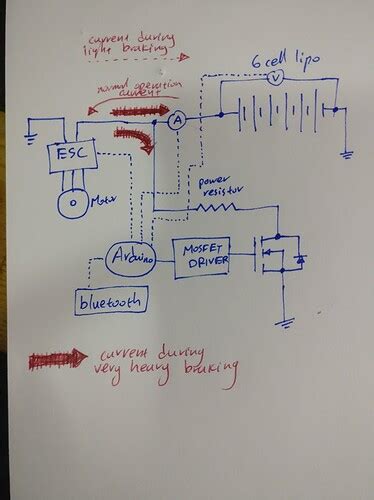 current during
light braking
6 cell lipo
V
normal operation
current
A
ESC
Motor
power
resistor
Arduino
MOSFET
DRIVER
bluetooth
current during
very heavy braking